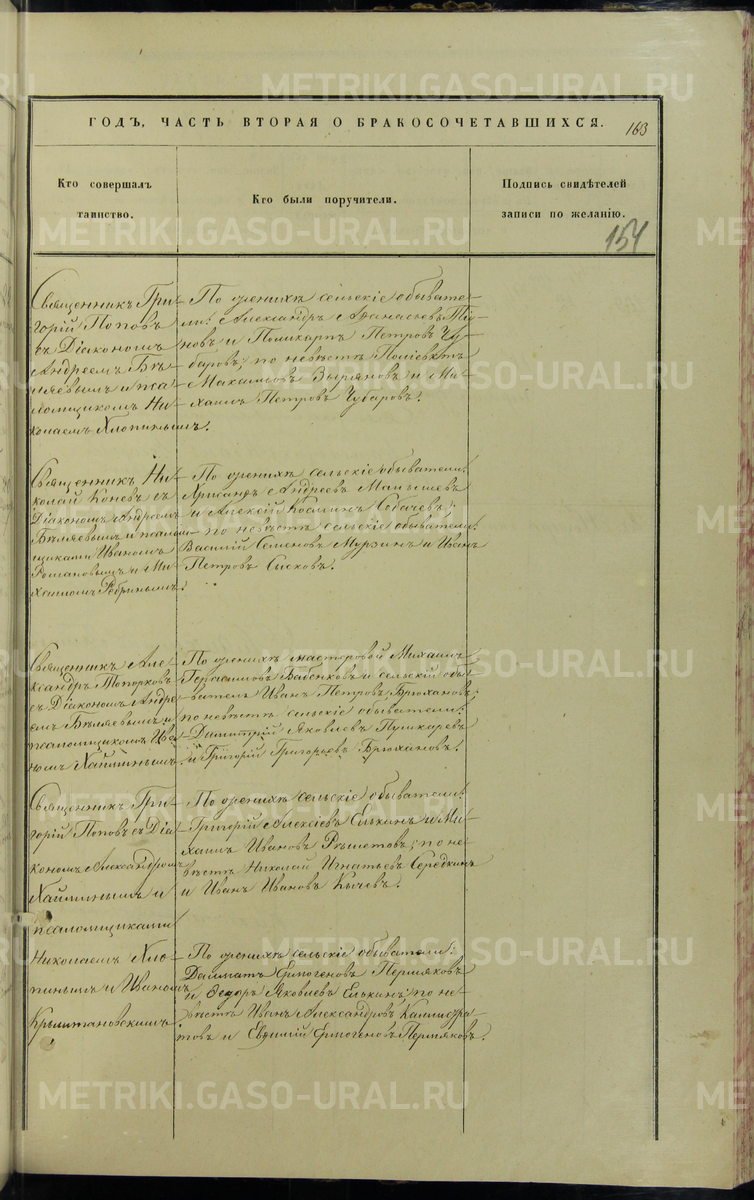 METRIKI.GASO-URAL.RU
ГОДЪ, ЧАСТЬ ВТОРАЯ О БРАКОСОЧЕТАВШИХСЯ.
163
Кто совершалъ
таинство.
Кто были поручители.
Подпись свидѣтелей
записи по желанію.
154
Священникъ Гри-
горій Поповъ
съ Діакономъ
Андреемъ Бѣ-
ляевымъ и пса-
ломщикомъ Ни-
колаемъ Хлопинымъ.
По женихѣ сельскіе обывате-
ли: Александръ Афанасьевъ
и Поликарпъ Петровъ Чу-
баровъ; по невѣстѣ
Зыряновъ и Ми-
хаилъ Петровъ Чубаровъ.
Священникъ Ни-
колай Коневъ съ
Діакономъ Андреемъ
Бѣляевымъ и псалом-
щиками Иваномъ
Романовымъ и Ми-
хаиломъ
По женихѣ сельскіе обыватели:
Андреевъ
и Алексій Козминъ
по невѣстѣ сельскіе обыватели:
Василій Семеновъ Мурзинъ и Иванъ
Петровъ Сысковъ.
Священникъ Але-
ксандръ Топорковъ
съ Діакономъ Андре-
емъ Бѣляевымъ и
псаломщикомъ Ива-
номъ
По женихѣ мастеровой Михаилъ
Герасимовъ Бабенковъ и сельскій обы-
ватель Иванъ Петровъ Брюхановъ;
по невѣстѣ сельскіе обыватели:
Димитрій Яковлевъ Пушкаревъ
и Григорій Григорьевъ Брюхановъ.
Священникъ Гри-
горій Поповъ съ Діа-
кономъ Александромъ
и
псаломщиками
Николаемъ Хло-
пинымъ и Иваномъ
По женихѣ сельскіе обыватели:
Григорій Алексіевъ Елькинъ и Ми-
хаилъ Ивановъ Рѣшетовъ; по не-
вѣстѣ Николай Игнатьевъ Середкинъ
и Иванъ Ивановъ Кычевъ.
По женихѣ сельскіе обыватели:
Далматъ Ермогеновъ Пермяковъ
и Ѳедоръ Яковлевъ Елькинъ; по не-
вѣстѣ Иванъ Александровъ Каллистра-
товъ и Евѳимій Ермогеновъ Пермяковъ.